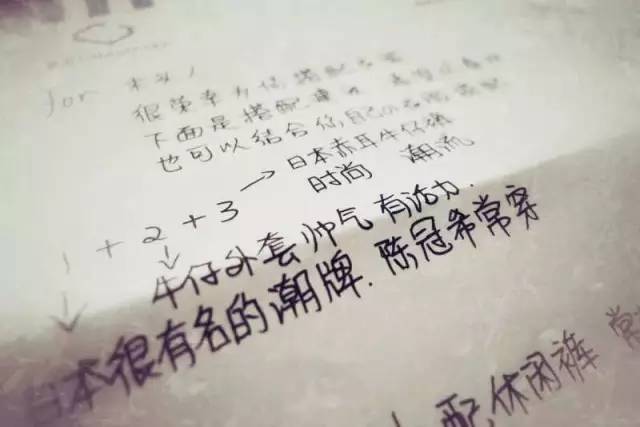 for
很荣幸为你搭配
下面是搭配建
也可以结合你自己
1 + 2 + 3 → 日本赤耳牛仔裤
时尚 潮流
牛仔外套 帅气有活力.
日本很有名的潮牌.陈冠希常穿
配休闲裤 常